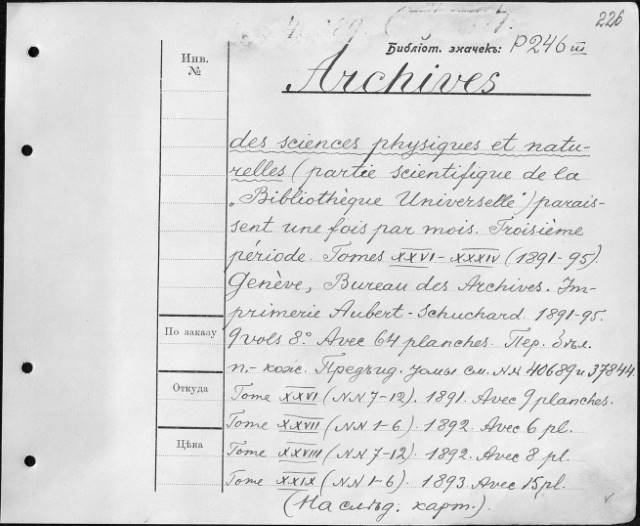 226
Библіот. значекъ: P246 III
Инв.
№
Archives
des sciences physiques et natu-
relles (partie scientifique de la
„Bibliothèque Universelle") parais-
sent une fois par mois. Troisième
période. Tomes XXVI - XXXIV (1891-95).
Genève, Bureau des Archives. Im-
primerie Aubert-Schuchard. 1891-95.
По заказу
9 vols 8°. Avec 64 planches. Пер.
п.- кож. Предъид. томы см. NN 40689 и 37844.
Откуда
Tome XXVI (NN 7-12). 1891. Avec 9 planches.
Tome XXVII (NN 1-6). 1892. Avec 6 pl.
Цѣна
Tome XXVIII (NN 7-12). 1892. Avec 8 pl.
Tome XXIX (NN 1-6). 1893. Avec 15 pl.
(На слѣд. карт.).